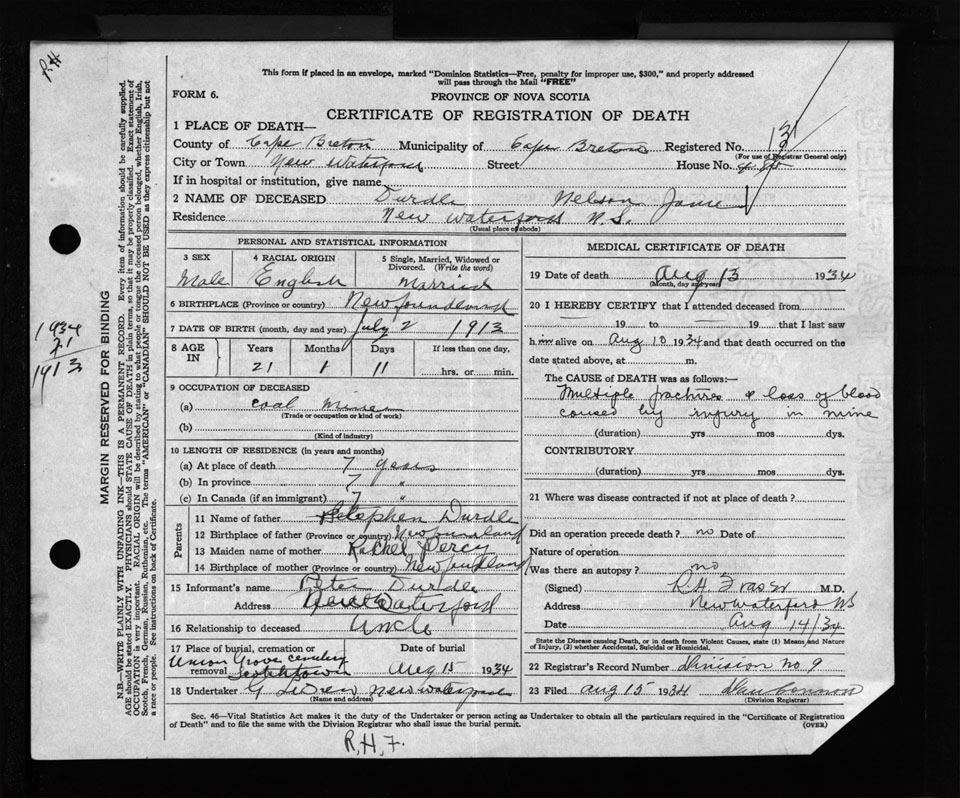 R.H.
This form if placed in an envelope, marked "Dominion Statistics—Free, penalty for improper use, $300," and properly addressed
will pass through the Mail "FREE"
FORM 6.
PROVINCE OF NOVA SCOTIA
CERTIFICATE OF REGISTRATION OF DEATH
1 PLACE OF DEATH—
County of Cape Breton Municipality of Cape Breton Registered No. 131
(For use of Registrar General only)
City or Town New Waterford Street House No.
If in hospital or institution, give name
2 NAME OF DECEASED Durdle Nelson
Residence New Waterford N.S.
(Usual place of abode)
PERSONAL AND STATISTICAL INFORMATION
3 SEX 4 RACIAL ORIGIN 5 Single, Married, Widowed or Divorced. (Write the word)
Male English Married
6 BIRTHPLACE (Province or country) Newfoundland
7 DATE OF BIRTH (month, day and year) July 2 1913
8 AGE IN Years Months Days If less than one day.
21 1 11 hrs. or min.
9 OCCUPATION OF DECEASED
(a) Coal Miner
(Trade or occupation or kind of work)
(b)
(Kind of industry)
10 LENGTH OF RESIDENCE (in years and months)
(a) At place of death 7 years
(b) In province 7 "
(c) In Canada (if an immigrant) 7 "
Parents
11 Name of father Stephen Durdle
12 Birthplace of father (Province or country) Newfoundland
13 Maiden name of mother Rachel Percy
14 Birthplace of mother (Province or country) Newfoundland
15 Informant's name Peter Durdle
Address New Waterford
16 Relationship to deceased Uncle
17 Place of burial, cremation or removal Date of burial
Union Grove Cemetery
Scotchtown Aug 15 1934
18 Undertaker New Waterford
(Name and address)
MEDICAL CERTIFICATE OF DEATH
19 Date of death Aug 13 1934
(Month, day and year)
20 I HEREBY CERTIFY that I attended deceased from
19 to 19 that I last saw
him alive on Aug 10 1934 and that death occurred on the
date stated above, at m.
The CAUSE of DEATH was as follows:—
Multiple fractures & loss of blood
caused by injury in mine
(duration) yrs mos dys.
CONTRIBUTORY
(duration) yrs mos dys.
21 Where was disease contracted if not at place of death?
Did an operation precede death? no Date of
Nature of operation
Was there an autopsy? no
(Signed) R.H. Fraser M.D.
Address New Waterford NS
Date Aug 14/34
State the Disease causing Death, or in death from Violent Causes, state (1) Means and Nature
of Injury, (2) whether Accidental, Suicidal or Homicidal.
22 Registrar's Record Number Division no 9
23 Filed aug 15 1934
(Division Registrar)
Sec. 46—Vital Statistics Act makes it the duty of the Undertaker or person acting as Undertaker to obtain all the particulars required in the "Certificate of Registration
of Death" and to file the same with the Division Registrar who shall issue the burial permit. (OVER)
R.H.F.
1934
21
1913
MARGIN RESERVED FOR BINDING
N.B.—WRITE PLAINLY WITH UNFADING INK—THIS IS A PERMANENT RECORD. Every item of information should be carefully supplied.
AGE should be stated EXACTLY. PHYSICIANS should STATE CAUSE OF DEATH in plain terms, so that it may be properly classified. Exact statement of
OCCUPATION is very important. RACIAL ORIGIN will be described by stating to what people or tongue the deceased person belonged, whether English, Irish,
Scotch, French, German, Russian, Ruthenian, etc. The terms "AMERICAN" or "CANADIAN" SHOULD NOT BE USED as they express citizenship but not
a race or people. See instructions on back of Certificate.